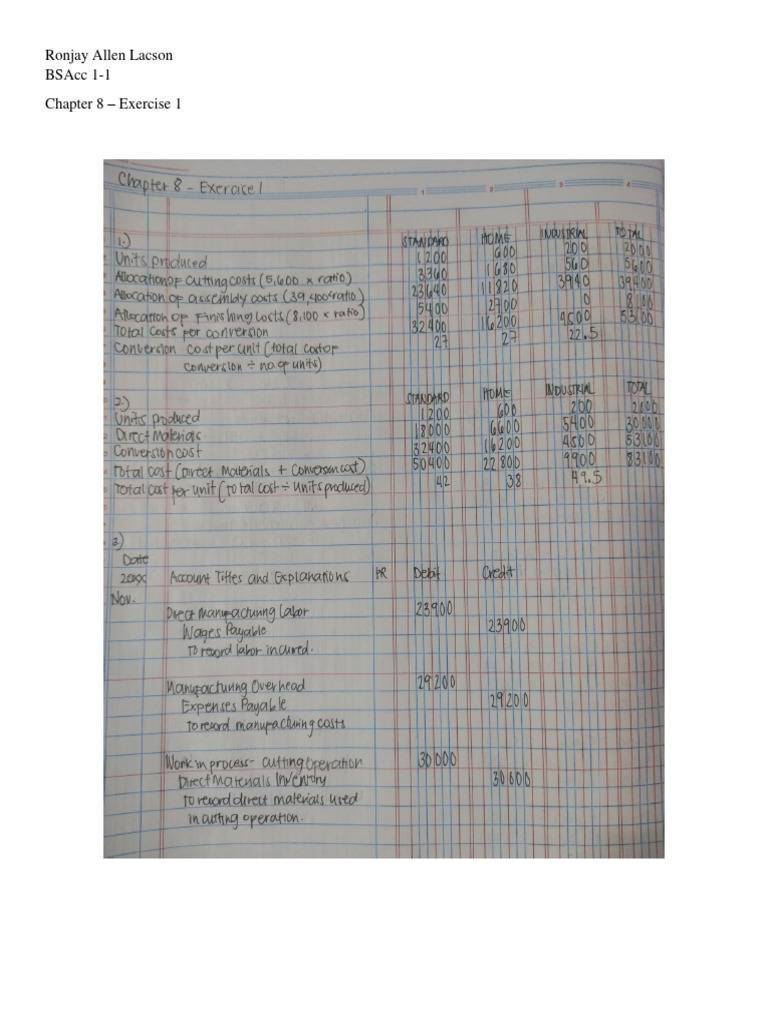 Ronjay Allen Lacson
BSAcc 1-1
Chapter 8 – Exercise 1
Chapter 8 - Exercise 1
1 2 3 4
1.) STANDARD HOME INDUSTRIAL TOTAL
Units produced 1200 600 200 2000
Allocation of cutting costs (5,600 x ratio) 3360 1680 560 5600
Allocation of assembly costs (39,400 x ratio) 23640 11820 3940 39400
Allocation of Finishing Costs (8,100 x ratio) 5400 2700 0 8100
Total Costs per conversion 32400 16200 4500 53100
Conversion cost per unit (total cost of 27 27 22.5
conversion ÷ no. of units)
2.) STANDARD HOME INDUSTRIAL TOTAL
Units produced 1200 600 200 2000
Direct Materials 18000 6600 5400 30000
Conversion cost 32400 16200 4500 53100
Total cost (Direct Materials + Conversion cost) 50400 22800 9900 83100
Total cost per unit (Total cost ÷ units produced) 42 38 49.5
3)
Date
20xx Account Titles and Explanations PR Debit Credit
Nov.
Direct manufacturing Labor 23900
Wages Payable 23900
To record labor incured.
Manufacturing Overhead 29200
Expenses Payable 29200
To record manufacturing costs
Work in process - cutting Operation 30000
Direct Materials Inventory 30000
To record direct materials used
in cutting operation.